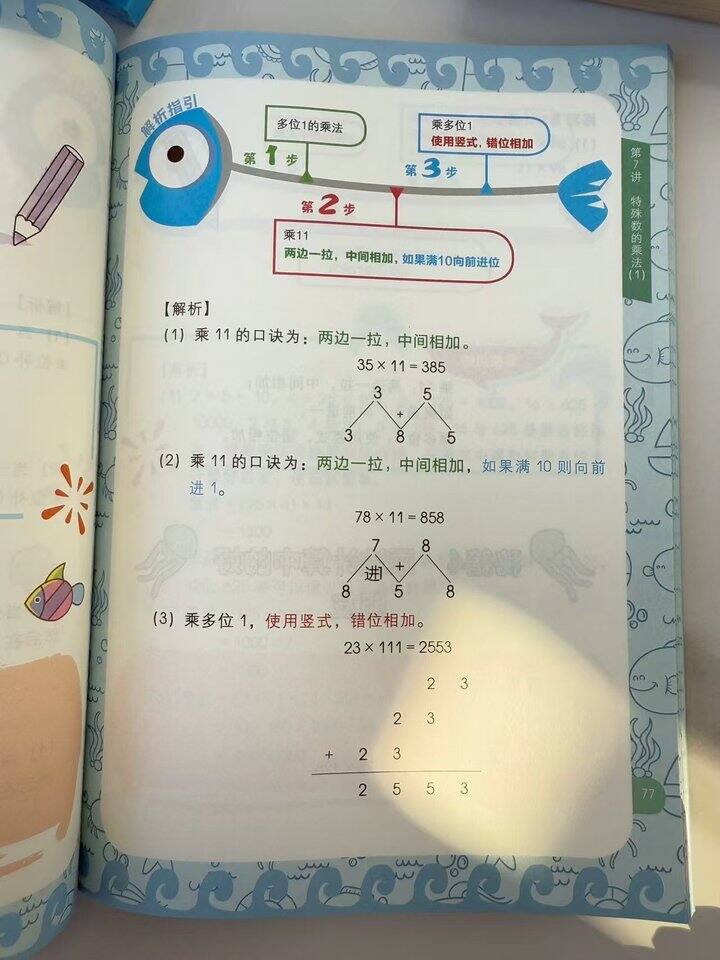 解析指引
多位1的乘法
第1步
乘多位1
使用竖式，错位相加
第3步
第2步
乘11
两边一拉，中间相加，如果满10向前进位
第7讲 特殊数的乘法(1)
【解析】
(1) 乘 11 的口诀为：两边一拉，中间相加。
35 × 11 = 385
3 5
+
3 8 5
(2) 乘 11 的口诀为：两边一拉，中间相加，如果满 10 则向前
进 1。
78 × 11 = 858
7 8
进1 +
8 5 8
(3) 乘多位 1，使用竖式，错位相加。
23 × 111 = 2553
2 3
2 3
+ 2 3
2 5 5 3
77